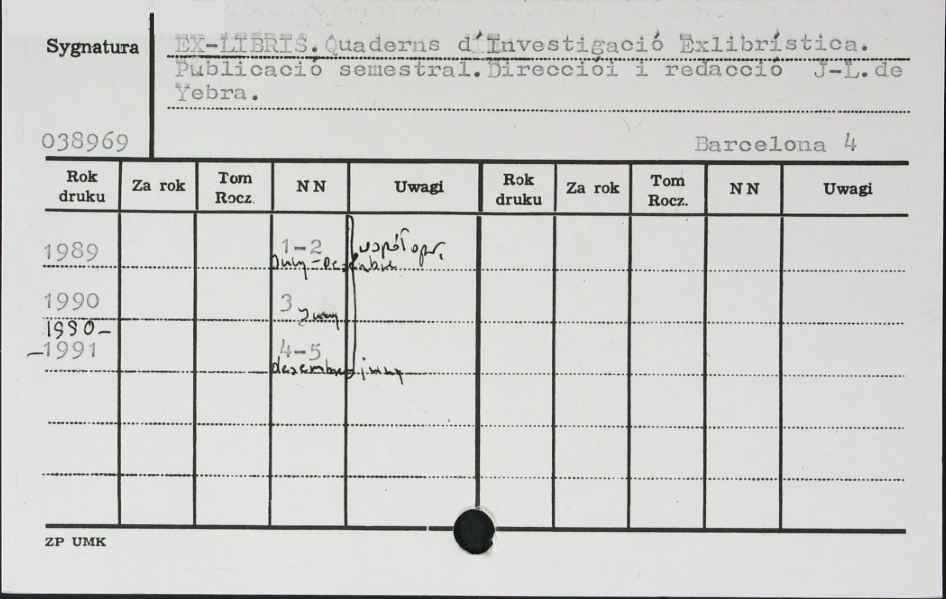 Sygnatura
EX-LIBRIS. Quaderns d'Investigació Exlibrística.
Publicació semestral. Direcciói i redacció J-L. de
Yebra.
038969
Barcelona 4
Rok druku Za rok Tom Rocz. NN Uwagi Rok druku Za rok Tom Rocz. NN Uwagi
1989 1-2 współopr.
juny - desembre
1990 3 juny
1990-
-1991 4-5
desembre juny
ZP UMK